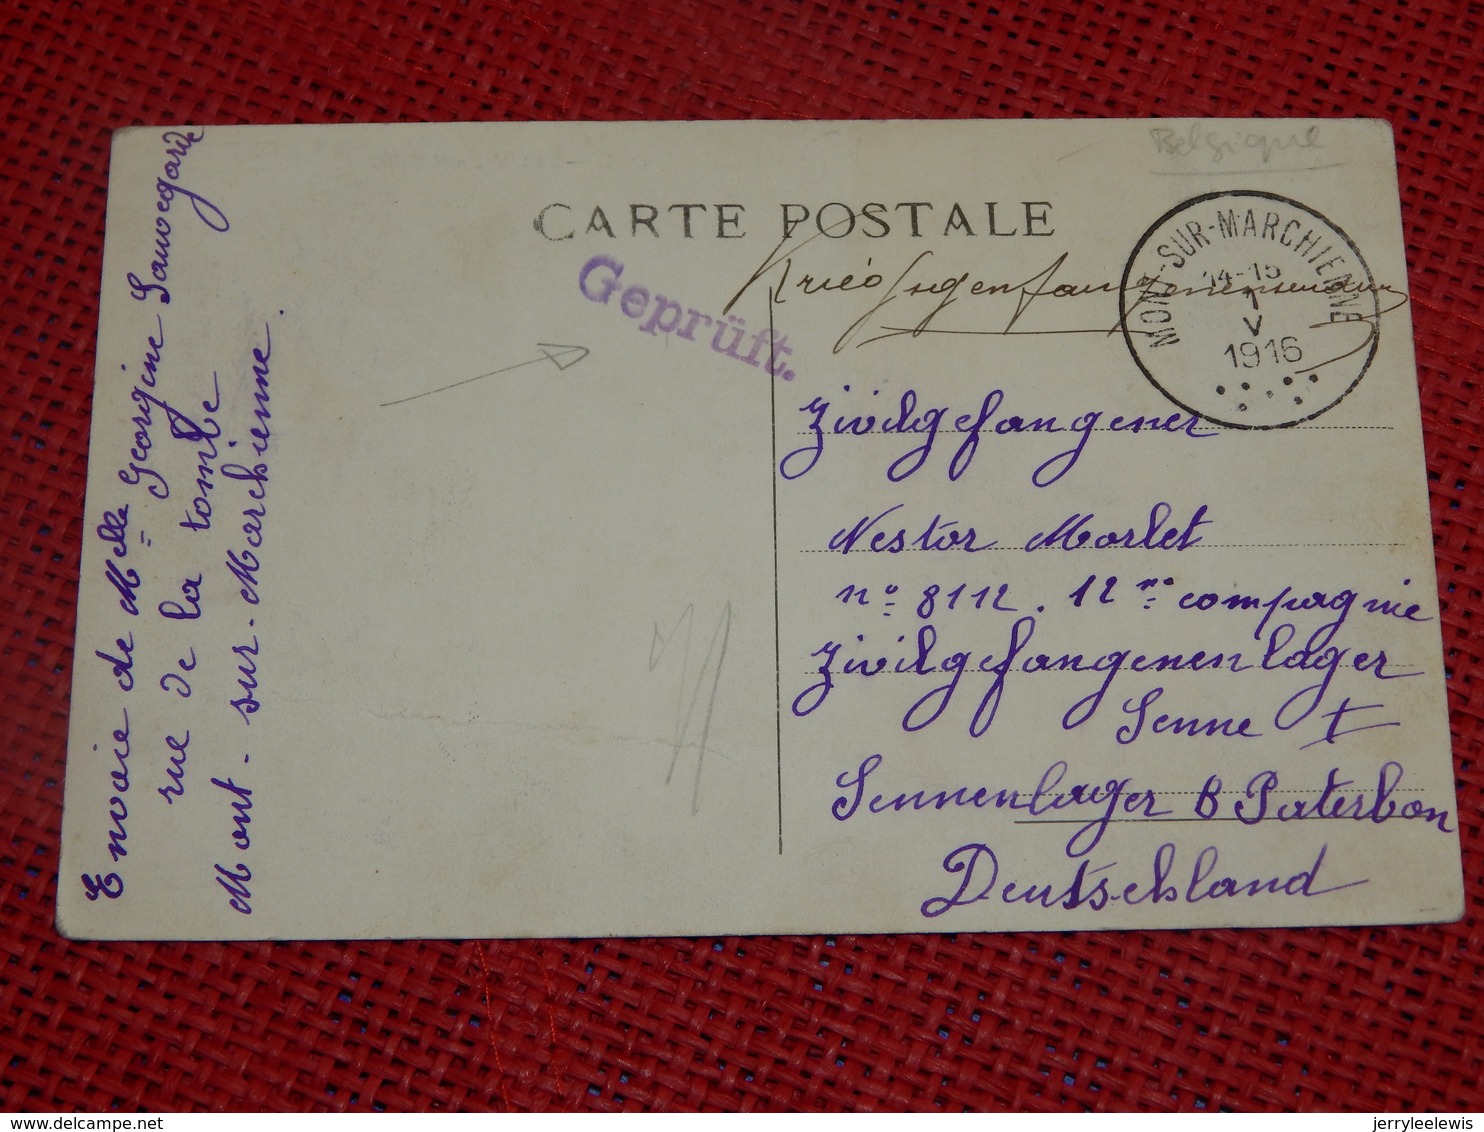 Belgique
CARTE POSTALE
MONT-SUR-MARCHIENNE
14-15
1
V
1916
Geprüft.
Zivilgefangener
Nestor Morlet
nº 8112. 12me compagnie
Zivilgefangenenlager
Senne I
Sennenlager B Paterbon
Deutschland
Envoie de Melle Georgine Sauvegarde
rue de la tombe
Mont-sur-Marchienne.
delcampe.net
jerryleelewis